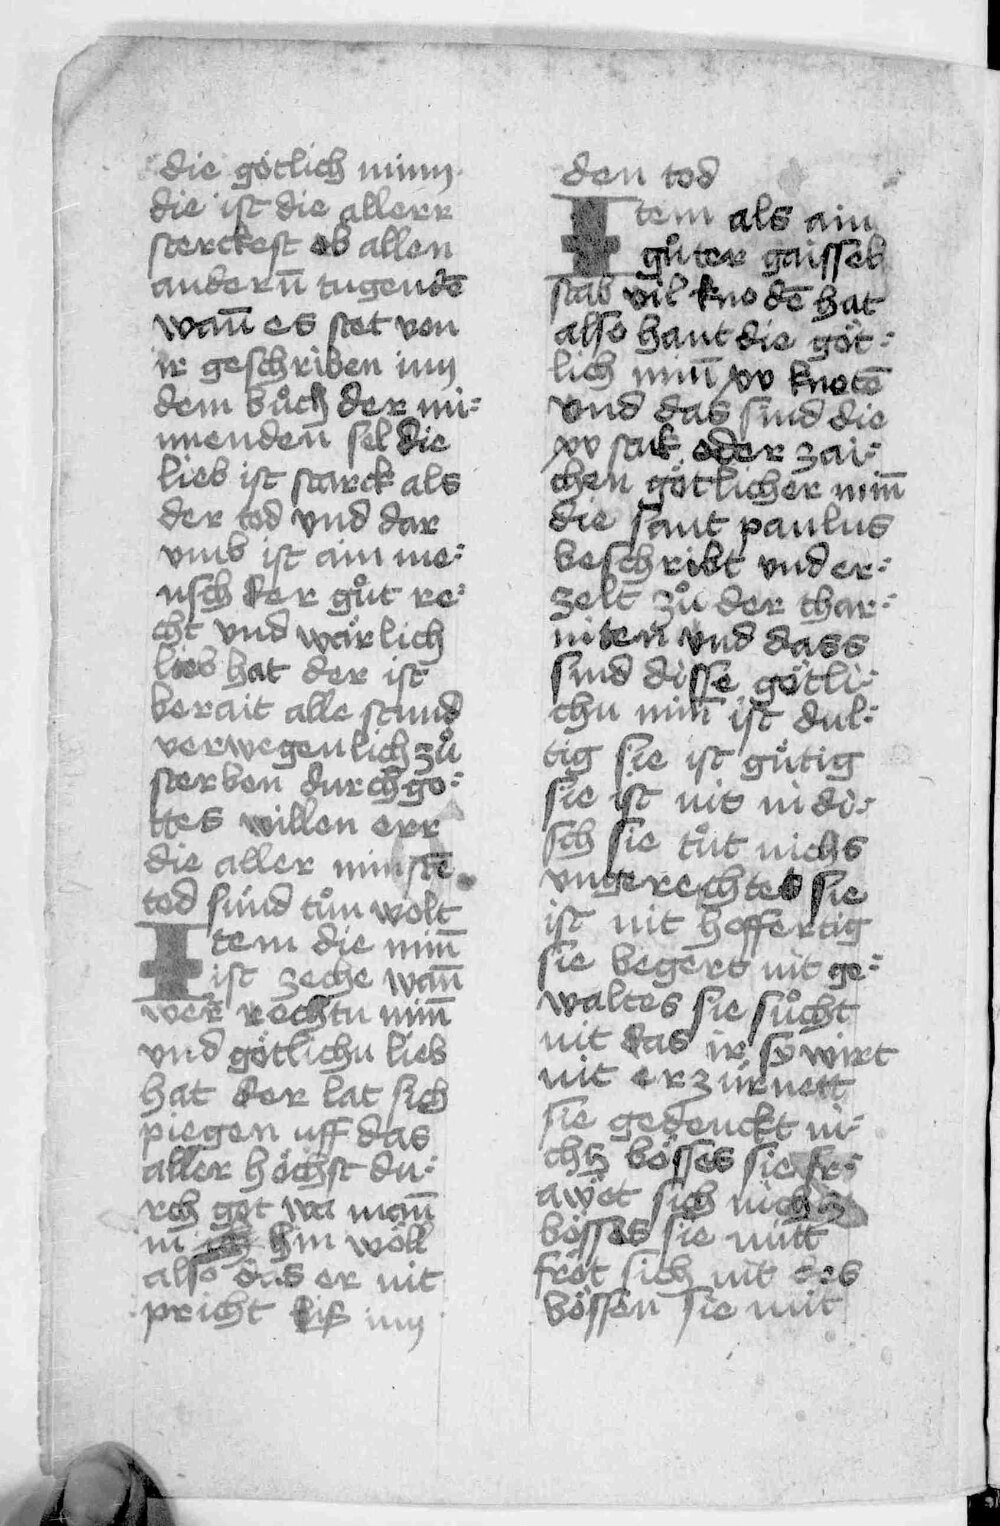 die götlich minn
die ist die allerr
sterckest ob allen
andern̄ tugendē
wan̄ es stet von
ir geschriben inn
dem bůch der mi:
nnenden sel die
lieb ist starck als
der tod vnd dar
vmb ist ain me:
nsch der gůt re:
cht vnd wärlich
lieb hat der ist
berait alle stund
verwegenlich zů
sterben durch go:
ttes willen err
die aller minstē
tod sünd tůn wolt
Item die min̄
ist zeche wan̄
wer rechtu min̄
vnd götlichu lieb
hat der lat sich
piegen uff das
aller höchst du:
rch got wa man̄
in hin wöll
also das er nit
pricht biß inn
den tod
Item als ain
gůter gaissel
stab vil knodē hat
also haut die göt:
lich min̄ xv knotē
vnd das sind die
xv stuk oder zai:
chen götlicher min̄
die sant paulus
beschribt vnd er:
zelt zů der char:
inten vnd dass
sind disse götli:
chu min̄ ist dul:
tig sie ist gůtig
sie ist nit nidi:
sch sie tůt nichs
vngerechtes sie
ist nit hoffertig
sie begert nit ge:
waltes sie sůcht
nit das ir sy wirt
nit erzürnett
sie gedenckt ni:
chtz bösses sie fr:
äwet sich nichtz
bösses sie nitt
fröt sich nit des
bössen sie mit